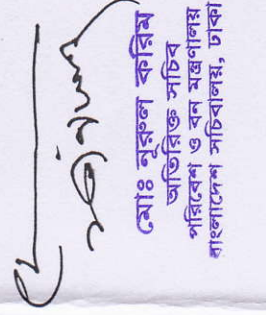 মোঃ নূরুল করিম
অতিরিক্ত সচিব
পরিবেশ ও বন মন্ত্রণালয়
বাংলাদেশ সচিবালয়, ঢাকা